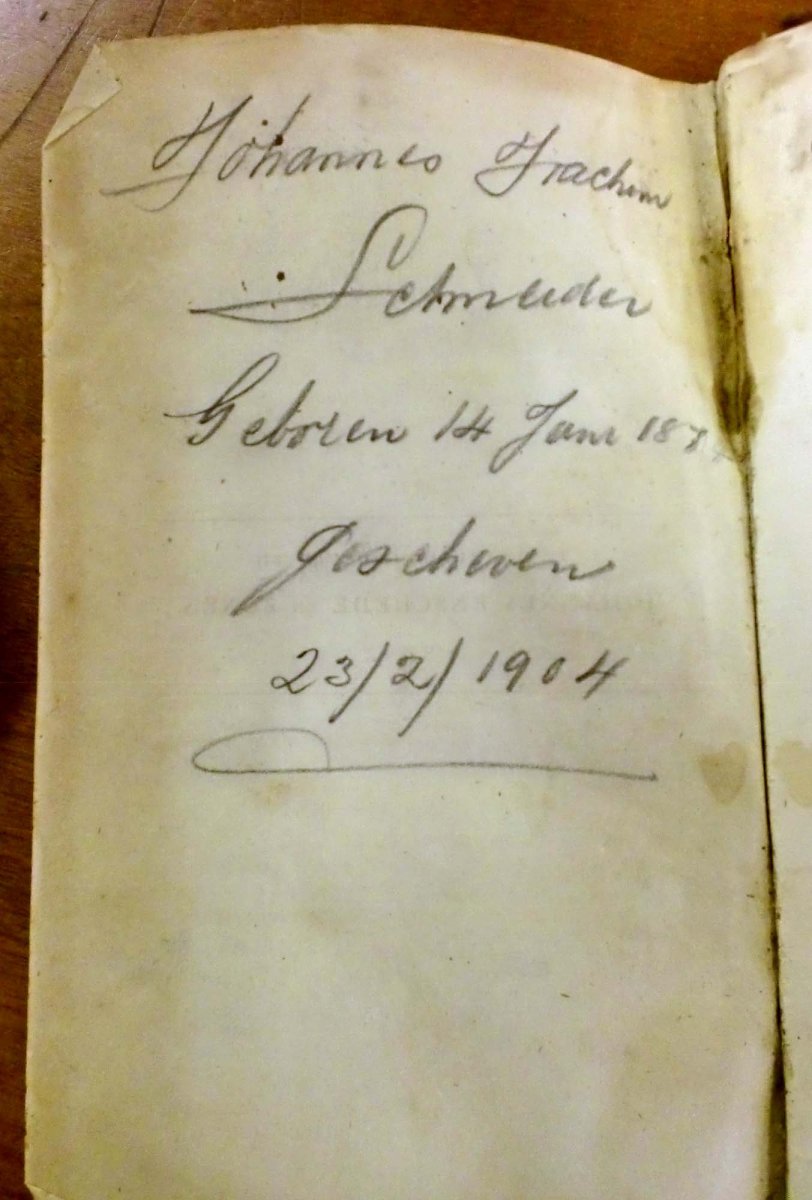 Johannes Joachim
Schreuder
Geboren 14 Juni
gescheven
23/2/1904